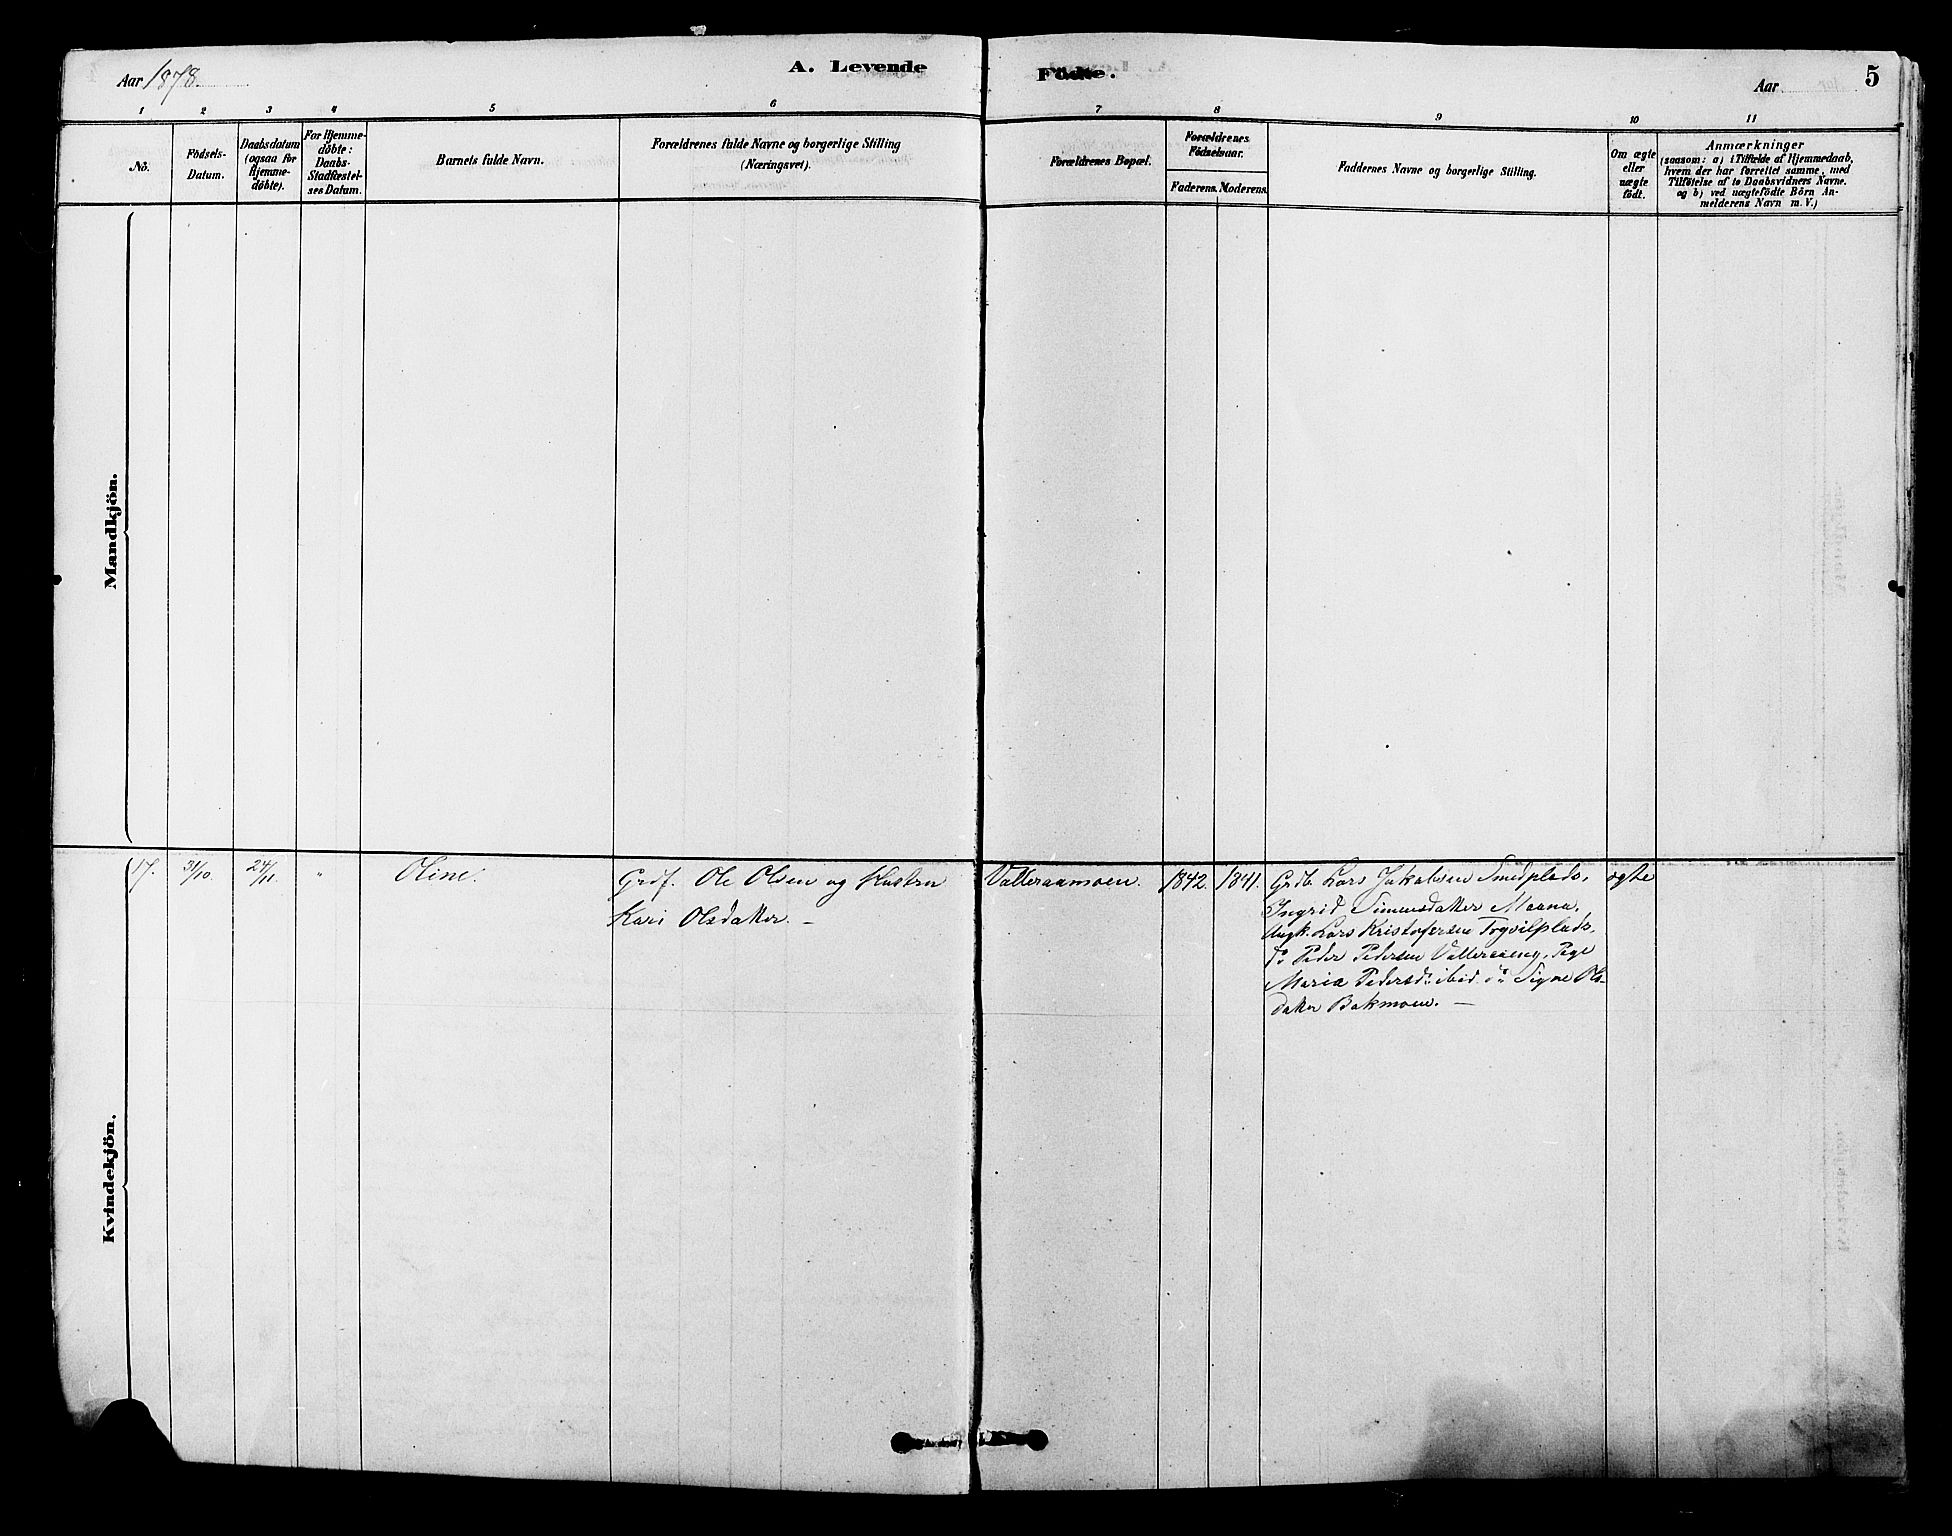 Aar 1878.
A. Levende
Födte.
Aar
5
1
2
3
4
5
6
7
8
9
10
11
No.
Födsels-
Datum.
Daabsdatum
(ogsaa for
Hjemme-
döbte).
For Hjemme-
döbte:
Daabs-
Stadfæstel-
ses Datum.
Barnets fulde Navn.
Forældrenes fulde Navne og borgerlige Stilling
(Næringsvei).
Forældrenes Bopæl.
Forældrenes
Födselsaar.
Faderens. Moderens.
Faddernes Navne og borgerlige Stilling.
Om ægte
eller
uægte
födt.
Anmærkninger
(saasom: a) i Tilfælde af Hjemmedaab,
hvem der har forrettet samme, med
Tilföielse af to Daabsvidners Navne.
og b) ved uægtefödte Börn An-
melderens Navn m. V.)
Mandkjön.
Kvindekjön.
17.
31/10.
24/11.
"
Oline.
Grdf. Ole Olsen og Hustru
Kari Olsdatter. —
Valleraamoen.
1842.
1841.
Grdb. Lars Jakobsen Smedplads,
Ingrid Simensdatter Moana,
Ungk. Lars Kristofersen
do Peder Pedersen Valleraeng, Pige
Maria Pedersd: ibid. do Signe Ols-
datter Bakmoen. —
ægte